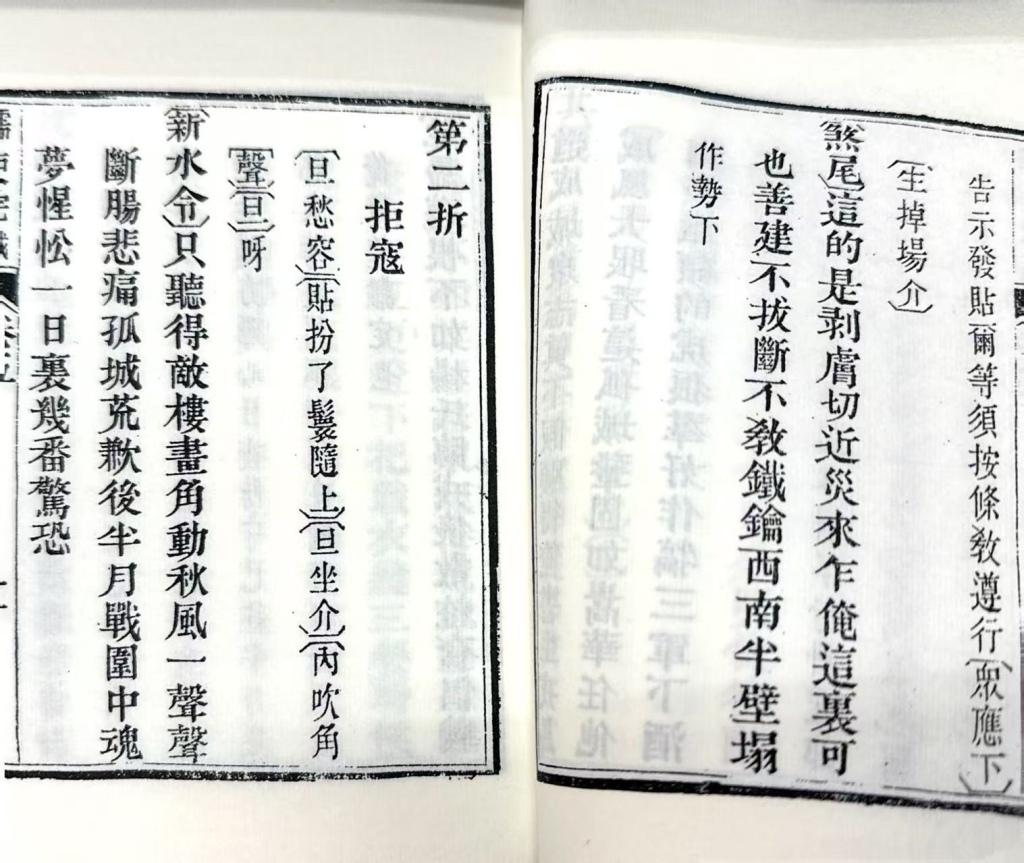 告示發貼爾等須按條教遵行〔衆應下〕
〔生掉場介〕
〔煞尾〕這的是剥膚切近災來乍俺這裏可
也善建不拔斷不教鐵鑰西南半壁塌
作勢下
第二折
拒寇
〔旦愁容〕〔貼扮了鬟隨上〕〔旦坐介〕〔內吹角
聲〕〔旦〕呀
〔新水令〕只聽得敵樓畫角動秋風一聲聲
斷腸悲痛孤城荒歉後半月戰圍中魂
夢惺忪一日裏幾番驚恐